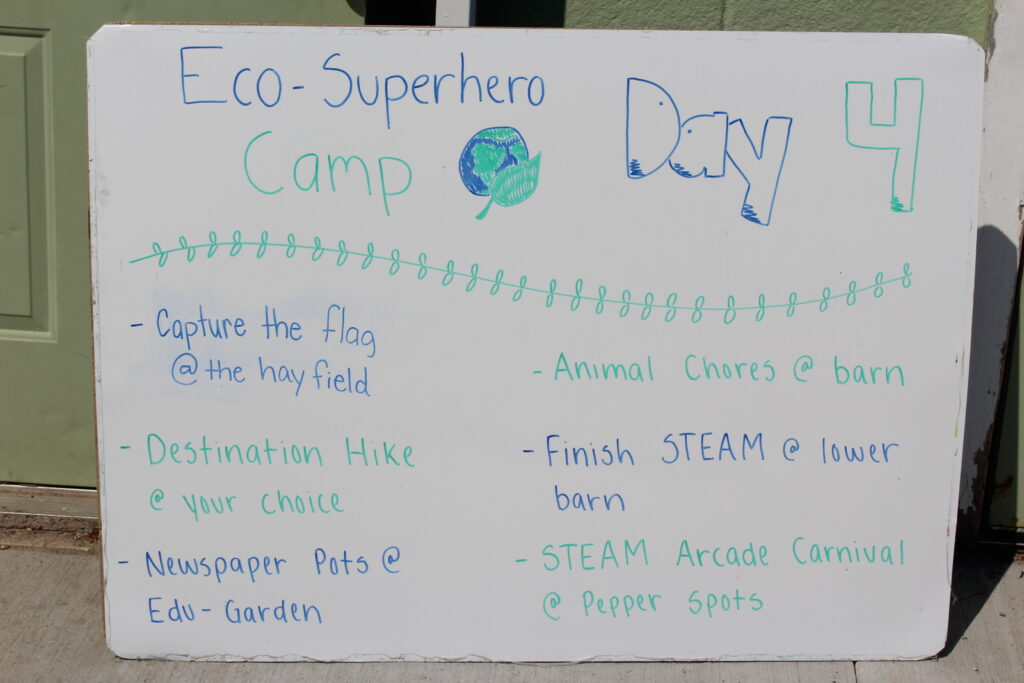 Eco-Superhero
Camp
Day 4
- Capture the flag
@ the hay field
- Destination Hike
@ your choice
- Newspaper Pots @
Edu-Garden
- Animal Chores @ barn
- Finish STEAM @ lower
barn
- STEAM Arcade Carnival
@ Pepper Spots